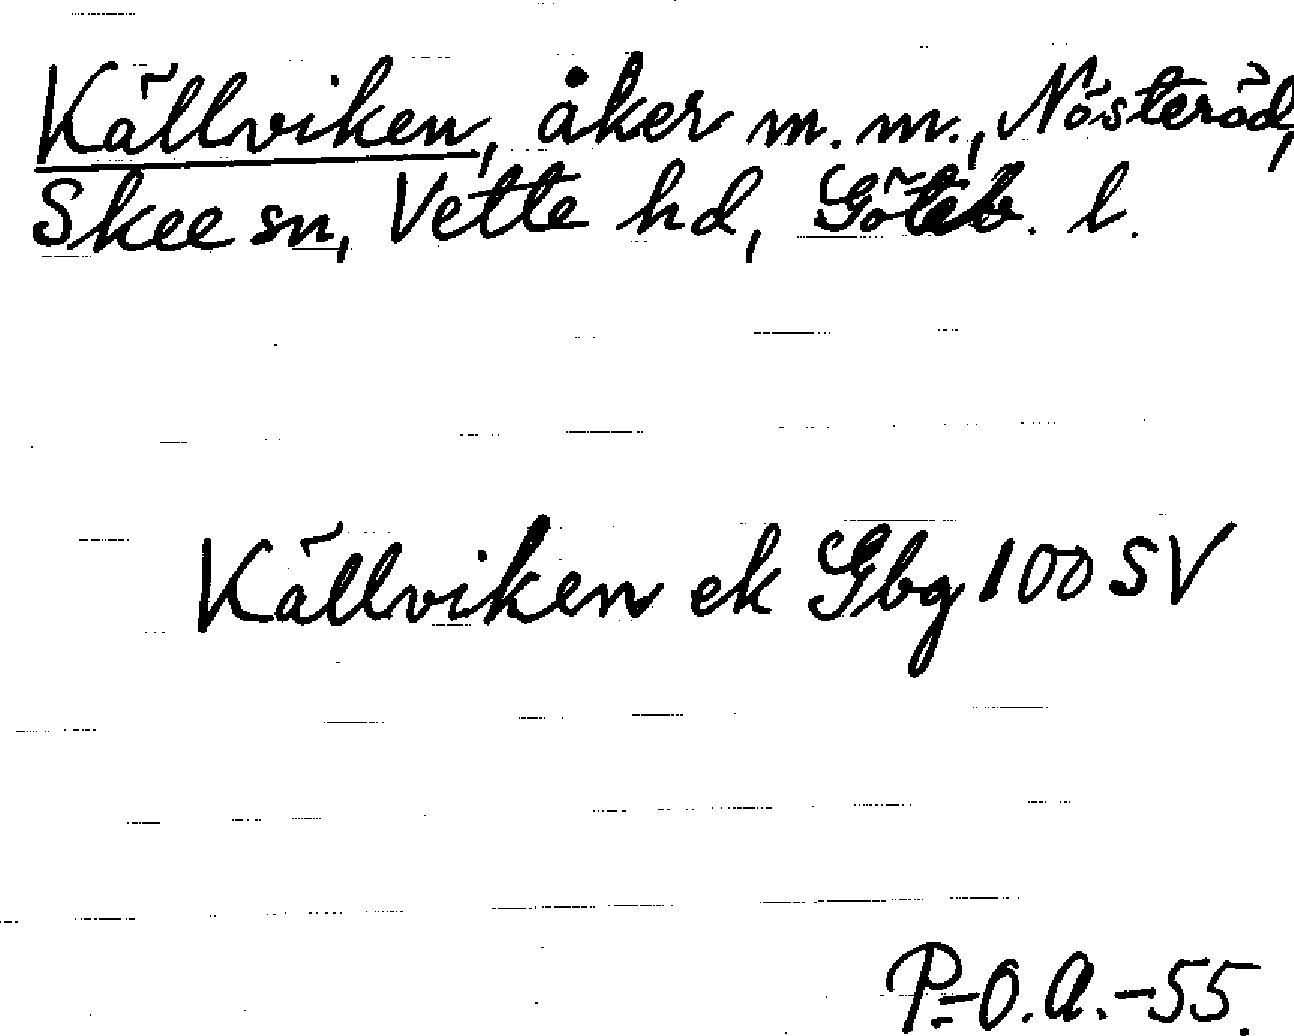 Källviken, åker m. m., Nösteröd,
Skee sn, Vette hd, Göteb. l.
Källviken ek Gbg 100 SV
P.-O. A. -55.